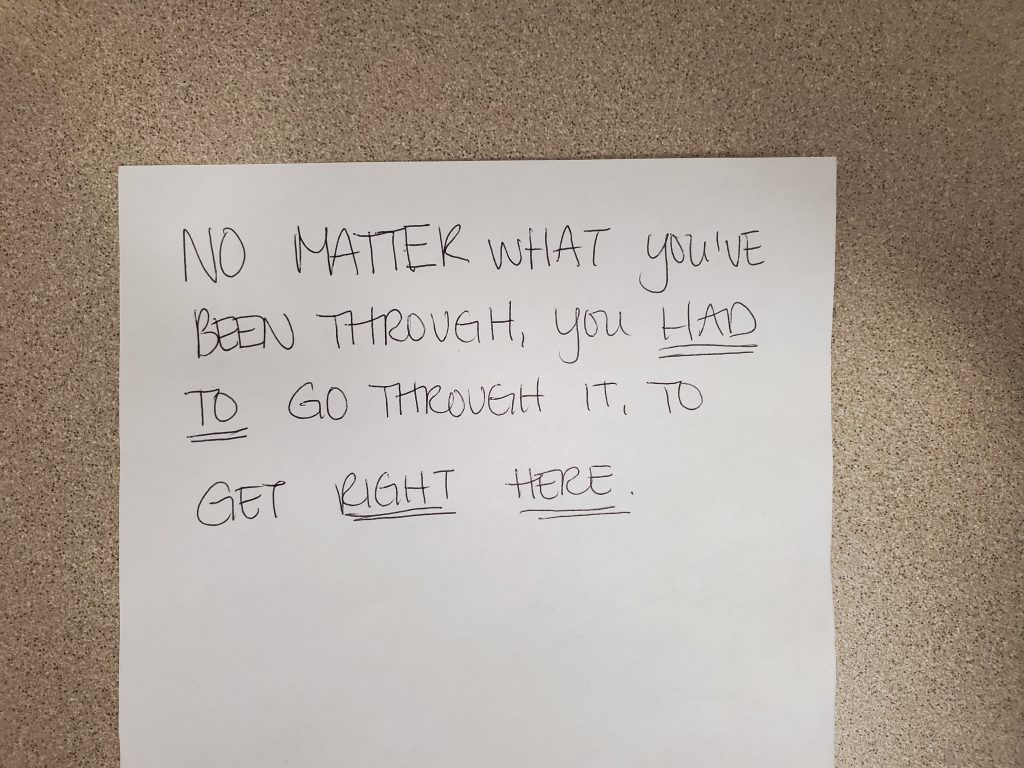 NO MATTER WHAT YOU'VE
BEEN THROUGH, YOU HAD
TO GO THROUGH IT, TO
GET RIGHT HERE.